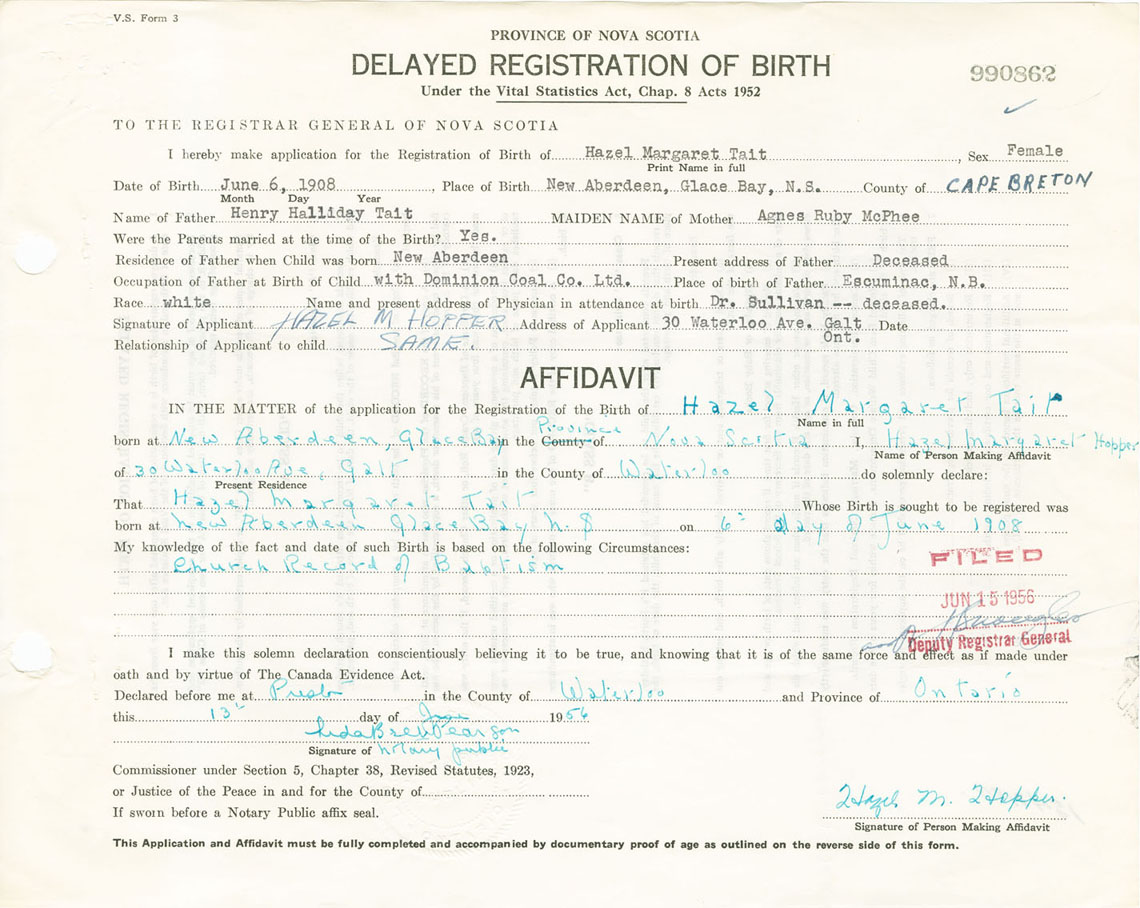 V.S. Form 3
PROVINCE OF NOVA SCOTIA
DELAYED REGISTRATION OF BIRTH
990862
Under the Vital Statistics Act, Chap. 8 Acts 1952
TO THE REGISTRAR GENERAL OF NOVA SCOTIA
I hereby make application for the Registration of Birth of Hazel Margaret Tait, Sex Female
Print Name in full
Date of Birth June 6, 1908, Place of Birth New Aberdeen, Glace Bay, N.S. County of CAPE BRETON
Month Day Year
Name of Father Henry Halliday Tait MAIDEN NAME of Mother Agnes Ruby McPhee
Were the Parents married at the time of the Birth? Yes.
Residence of Father when Child was born New Aberdeen Present address of Father Deceased
Occupation of Father at Birth of Child with Dominion Coal Co. Ltd. Place of birth of Father Escuminac, N.B.
Race white Name and present address of Physician in attendance at birth Dr. Sullivan -- deceased.
Signature of Applicant HAZEL M HOPPER Address of Applicant 30 Waterloo Ave. Galt Date
Ont.
Relationship of Applicant to child SAME.
AFFIDAVIT
IN THE MATTER of the application for the Registration of the Birth of Hazel Margaret Tait
Name in full
Province
born at New Aberdeen, Glace Bay in the County of Nova Scotia I, Hazel Margaret Hopper
Name of Person Making Affidavit
of 30 Waterloo Ave, Galt in the County of Waterloo do solemnly declare:
Present Residence
That Hazel Margaret Tait Whose Birth is sought to be registered was
born at New Aberdeen Glace Bay N.S on 6th day of June 1908
My knowledge of the fact and date of such Birth is based on the following Circumstances:
Church Record of Baptism
FILED
JUN 15 1956
Deputy Registrar General
I make this solemn declaration conscientiously believing it to be true, and knowing that it is of the same force and effect as if made under
oath and by virtue of The Canada Evidence Act.
Declared before me at Preston in the County of Waterloo and Province of Ontario
this 13th day of June 1956
Signature of Notary public
Commissioner under Section 5, Chapter 38, Revised Statutes, 1923,
or Justice of the Peace in and for the County of
If sworn before a Notary Public affix seal.
Hazel M. Hopper.
Signature of Person Making Affidavit
This Application and Affidavit must be fully completed and accompanied by documentary proof of age as outlined on the reverse side of this form.